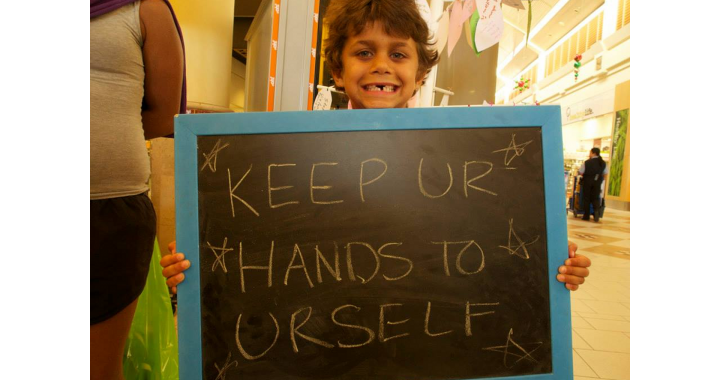 KEEP UR
HANDS TO
URSELF